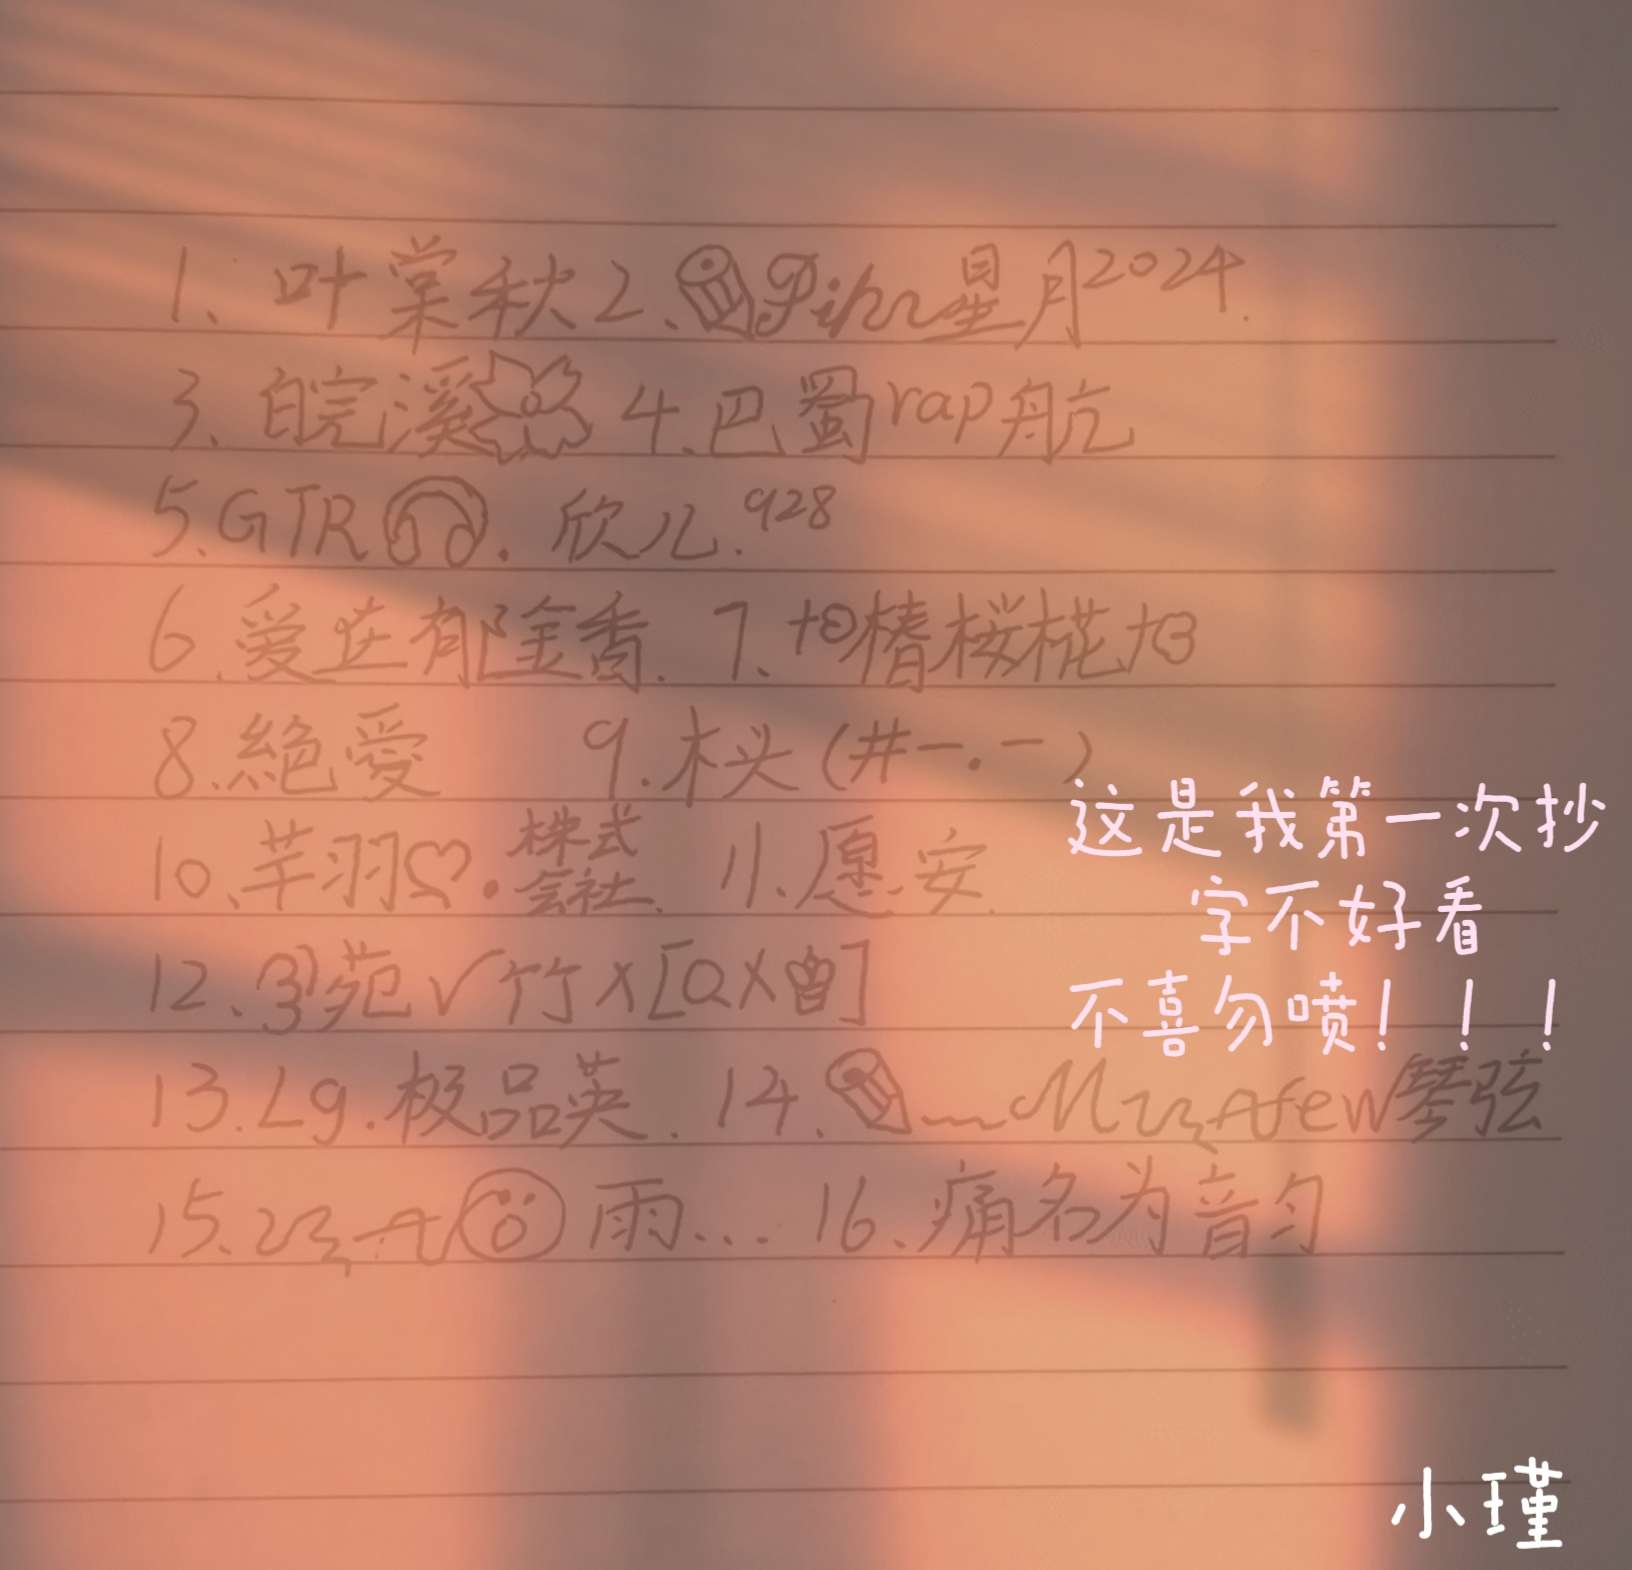 1、叶棠秋 2、Pihr星月2024.
3、皖溪 4.巴蜀rap航
5.GTR.欣儿.928
6.爱在郁金香. 7、椿桜椛
8.絶愛 9.木头(#一.一)
10、芊羽♡.株式会社. 11、愿安.
12、苑√竹×[Q×曾]
13.Lg.极品英. 14、few琴弦
15、雨... 16、痛名为音匀
这是我第一次抄
字不好看
不喜勿喷！！！
小瑾